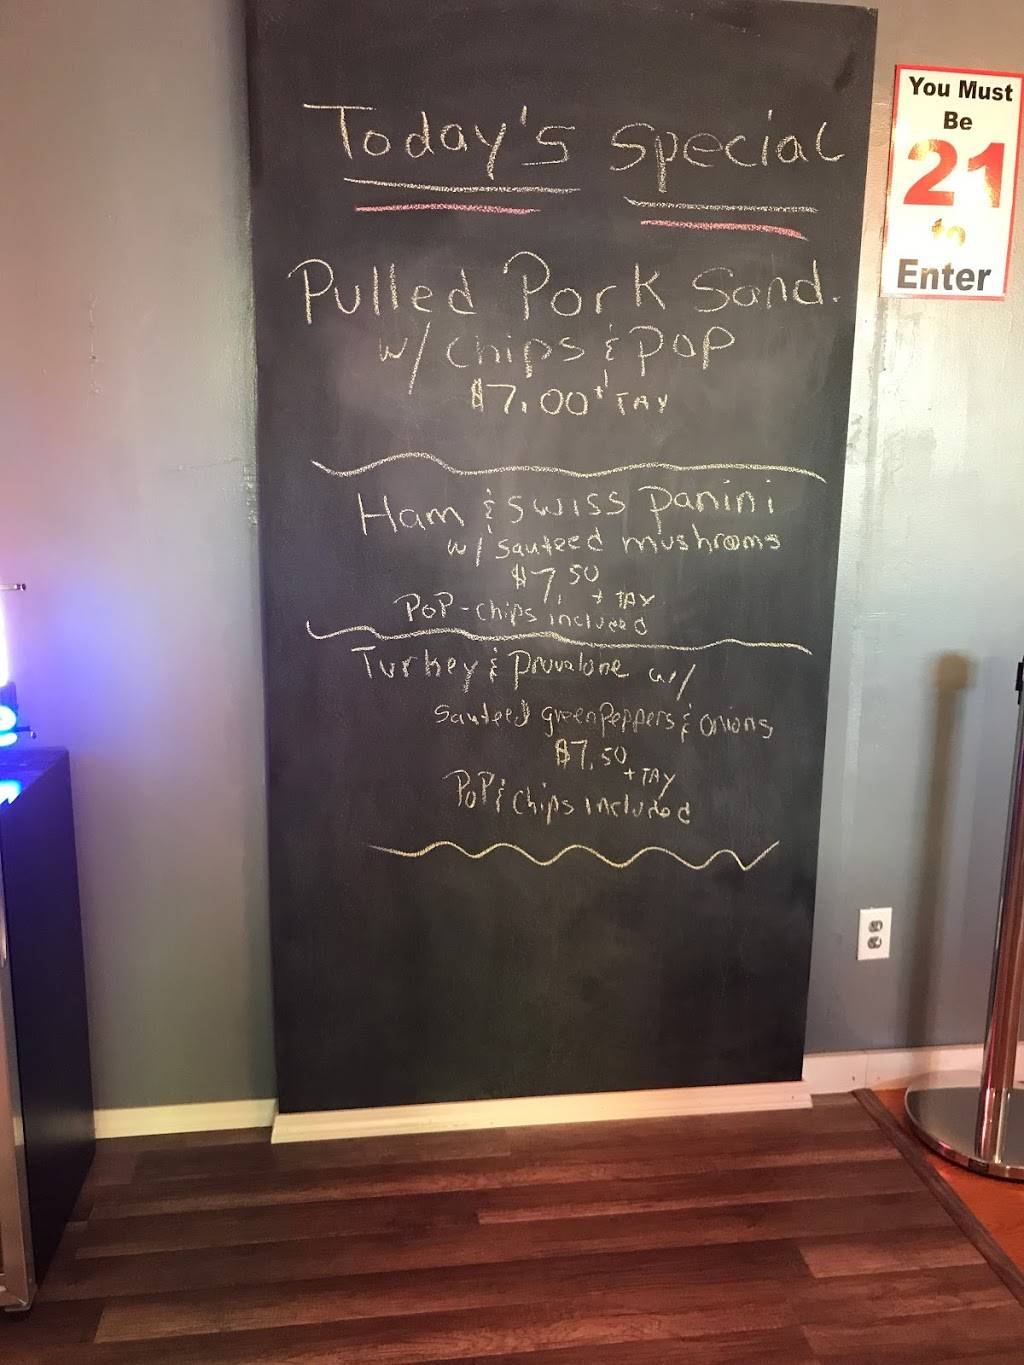 Today's Special
Pulled Pork Sand.
w/ chips & pop
$7.00 + TAX
Ham & Swiss panini
w/ sauteed mushrooms
$7.50
+ TAX
POP - chips included
Turkey & pruvalone w/
sauteed green peppers & onions
$7.50
+ TAX
POP & chips included
You Must
Be
21
to
Enter